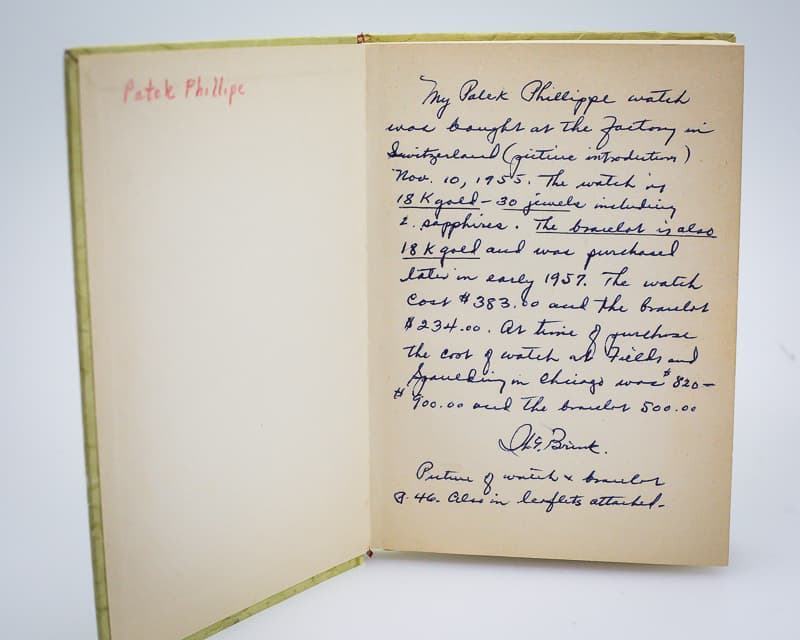 Patek Phillipe
My Patek Phillippe watch
was bought at the factory in
Switzerland (picture introduction)
Nov. 10, 1955. The watch is
18 K gold - 30 jewels including
2 sapphires. The bracelet is also
18 K gold and was purchased
later in early 1957. The watch
cost $383.00 and the bracelet
$234.00. At time of purchase
the cost of watch at Fields and
Spaulding in Chicago was $820-
$900.00 and the bracelet 500.00
Picture of watch & bracelet
P. 46. Also in leaflets attached-